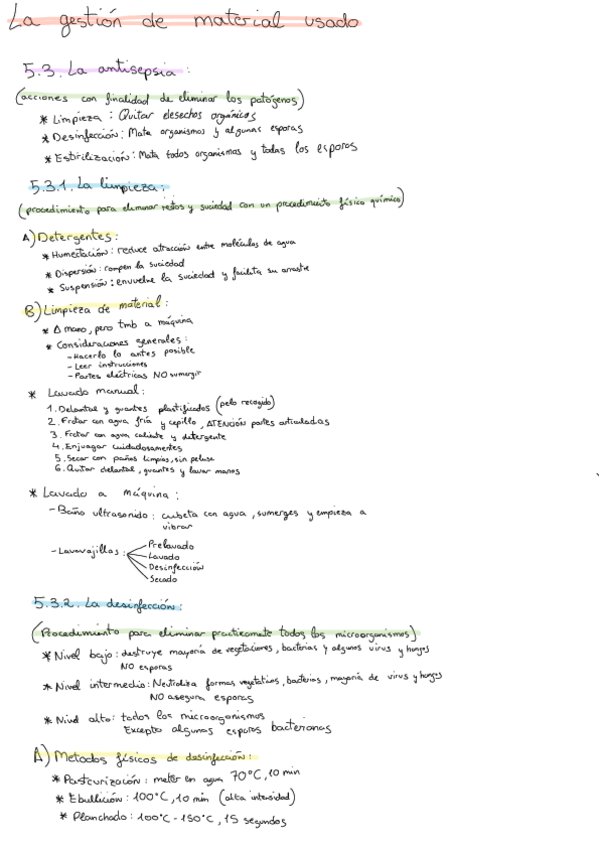 La gestión de material usado
5.3. La antisepsia:
(acciones con finalidad de eliminar los patógenos)
* Limpieza: Quitar desechos orgánicos
* Desinfección: Mata organismos y algunas esporas
* Esterilización: Mata todos organismos y todas los esporos
5.3.1. La limpieza:
(procedimiento para eliminar restos y suciedad con un procedimiento físico químico)
A) Detergentes:
* Humectación: reduce atracción entre moléculas de agua
* Dispersión: rompen la suciedad
* Suspensión: envuelve la suciedad y facilita su arrastre
B) Limpieza de material:
* A mano, pero tmb a máquina
* Consideraciones generales:
- Hacerlo lo antes posible
- Leer instrucciones
- Partes eléctricas NO sumergir
* Lavado manual:
1. Delantal y guantes plastificados (pelo recogido)
2. Frotar con agua fría y cepillo, ATENCIÓN partes articuladas
3. Frotar con agua caliente y detergente
4. Enjuagar cuidadosamente
5. Secar con paños limpios, sin pelusa
6. Quitar delantal, guantes y lavar manos
* Lavado a máquina:
- Baño ultrasonido: cubeta con agua, sumerges y empieza a
vibrar
- Lavavajillas:
Prelavado
Lavado
Desinfección
Secado
5.3.2. La desinfección:
(Procedimiento para eliminar practicamente todos los microorganismos)
* Nivel bajo: destruye mayoría de vegetaciones, bacterias y algunos virus y hongos
NO esporas
* Nivel intermedio: Neutraliza formas vegetativas, bacterias, mayoría de virus y hongos
NO asegura esporas
* Nivel alto: todos los microorganismos
Excepto algunas esporas bacterianas
A) Metodos físicos de desinfección:
* Pasteurización: meter en agua 70°C, 10 min
* Ebullición: 100°C, 10 min (alta intensidad)
* Planchado: 100°C - 150°C, 15 segundos